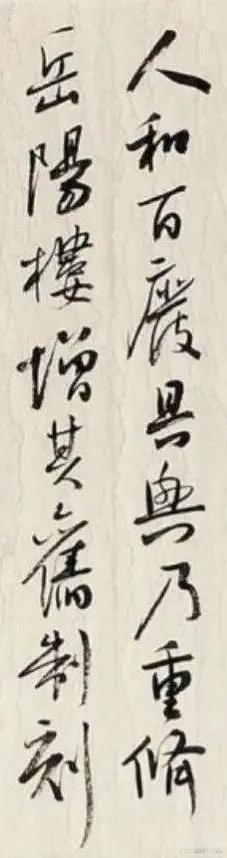 人和百廢具興乃重脩
岳陽樓增其舊制刻